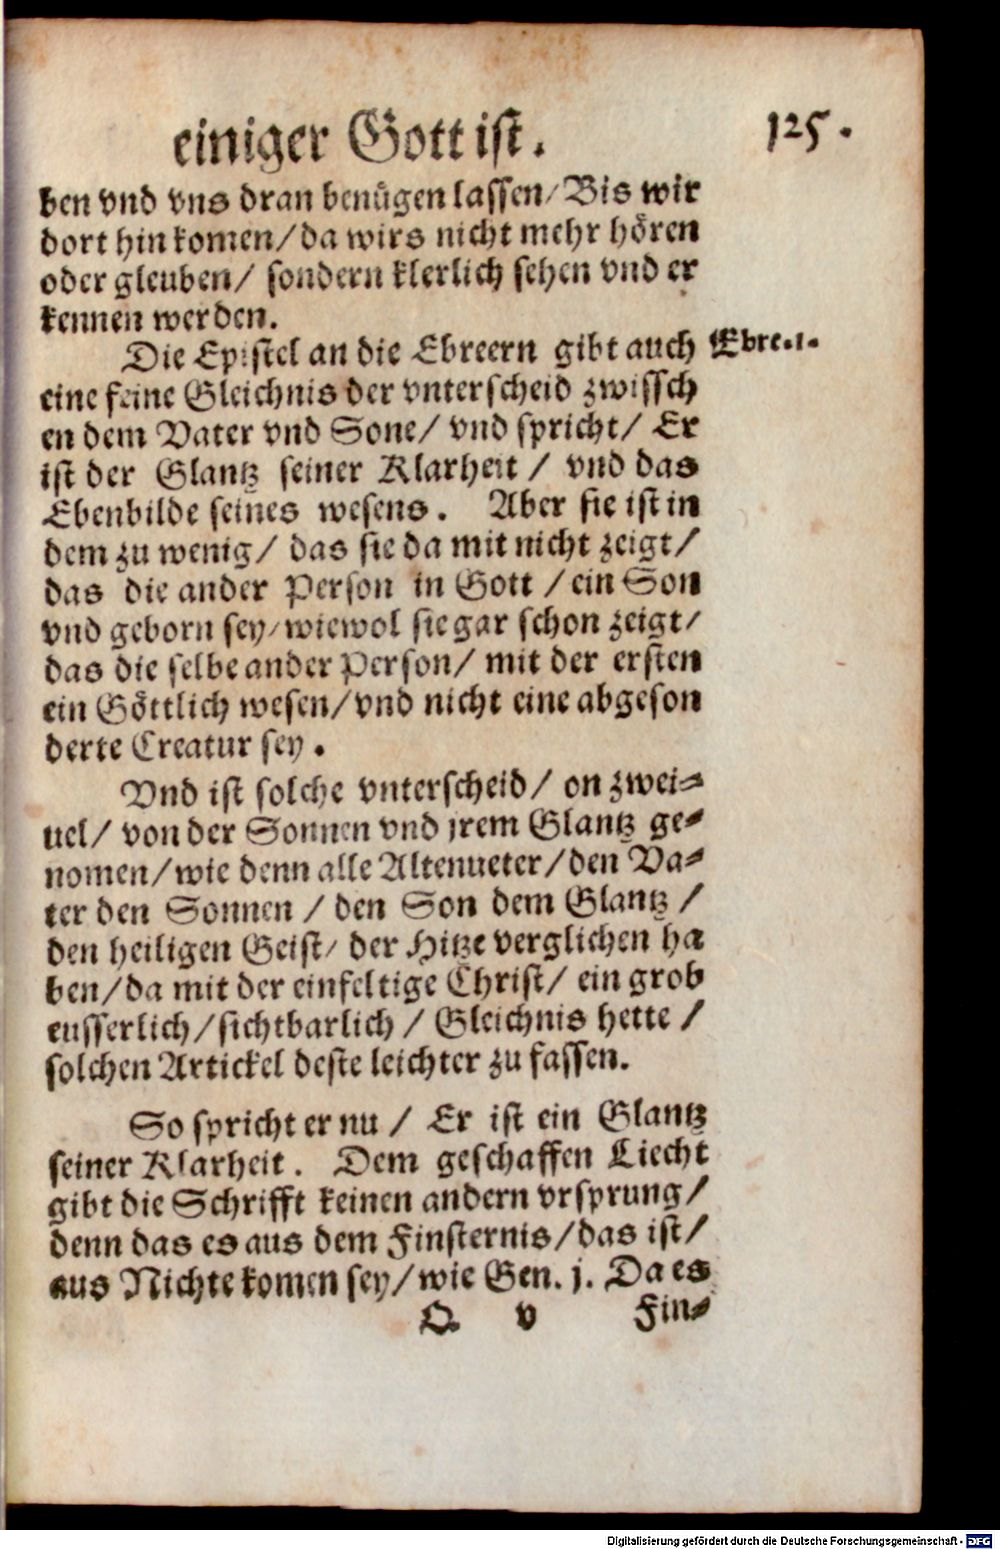 einiger Gott ist. 125.
ben vnd vns dran benügen lassen/ Bis wir
dort hin komen/ da wirs nicht mehr hören
oder gleuben/ sondern klerlich sehen vnd er
kennen werden.
Die Epistel an die Ebreern gibt auch Ebre.1.
eine feine Gleichnis der vnterscheid zwissch
en dem Vater vnd Sone/ vnd spricht/ Er
ist der Glantz seiner Klarheit / vnd das
Ebenbilde seines wesens. Aber sie ist in
dem zu wenig/ das sie da mit nicht zeigt/
das die ander Person in Gott / ein Son
vnd geborn sey/ wiewol sie gar schon zeigt/
das die selbe ander Person/ mit der ersten
ein Göttlich wesen/ vnd nicht eine abgeson
derte Creatur sey.
Vnd ist solche vnterscheid/ on zwei-
uel/ von der Sonnen vnd jrem Glantz ge-
nomen/ wie denn alle Altenueter/ den Va-
ter den Sonnen / den Son dem Glantz /
den heiligen Geist/ der Hitze verglichen ha
ben/ da mit der einfeltige Christ/ ein grob
eusserlich/ sichtbarlich / Gleichnis hette /
solchen Artickel deste leichter zu fassen.
So spricht er nu / Er ist ein Glantz
seiner Klarheit. Dem geschaffen Liecht
gibt die Schrifft keinen andern vrsprung/
denn das es aus dem Finsternis/ das ist/
aus Nichte komen sey/ wie Gen. j. Da es
Q v Fin-
Digitalisierung gefördert durch die Deutsche Forschungsgemeinschaft - DFG